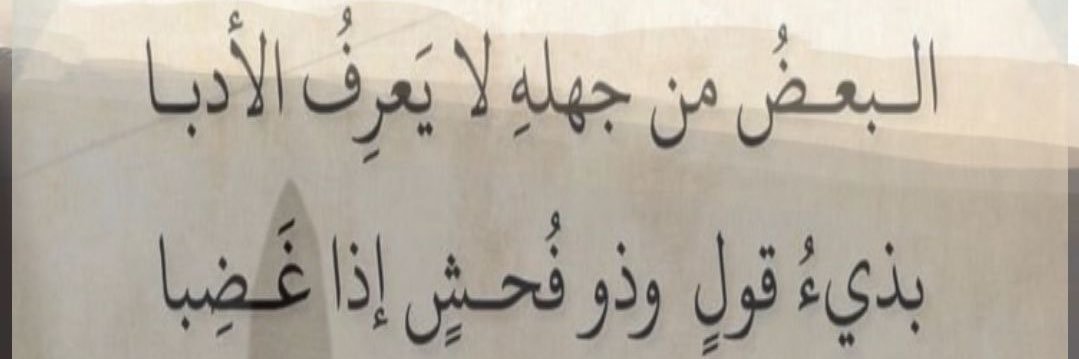 البعضُ من جهلهِ لا يَعرِفُ الأدبا
بذيءُ قولٍ وذو فُحشٍ إذا غَضِبا